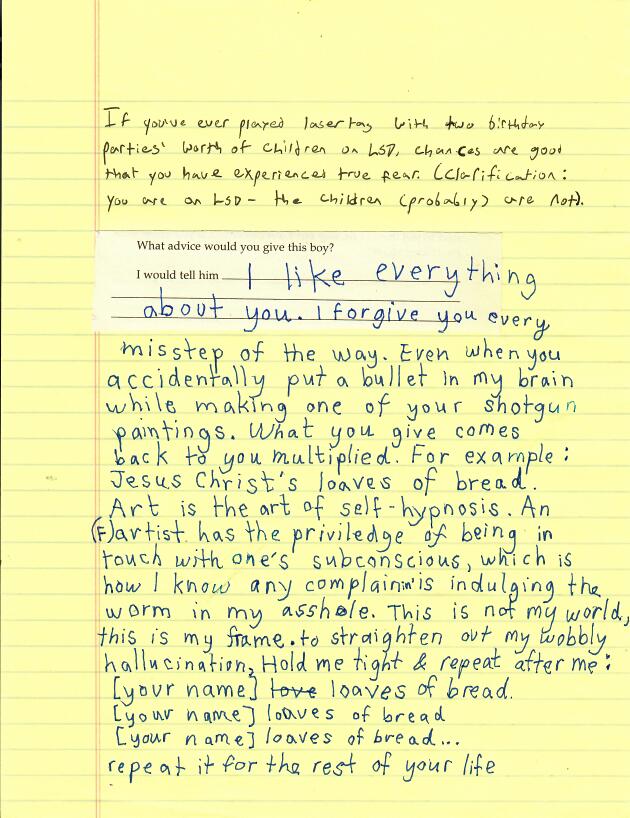 If youve ever played laser tag with two birthday
parties' worth of children on LSD, chances are good
that you have experiences true fear. (Clarification:
You are on LSD - the children (probably) are not).
What advice would you give this boy?
I would tell him I like everything
about you. I forgive you every
misstep of the way. Even when you
accidentally put a bullet in my brain
while making one of your shotgun
paintings. What you give comes
back to you multiplied. For example:
Jesus Christ's loaves of bread.
Art is the art of self-hypnosis. An
(F)artist has the priviledge of being in
touch with one's subconscious, which is
how I know any complainin' is indulging the
worm in my asshole. This is not my world,
this is my frame. to straighten out my wobbly
hallucination, Hold me tight & repeat after me:
[your name] love loaves of bread.
[your name] loaves of bread
[your name] loaves of bread...
repeat it for the rest of your life